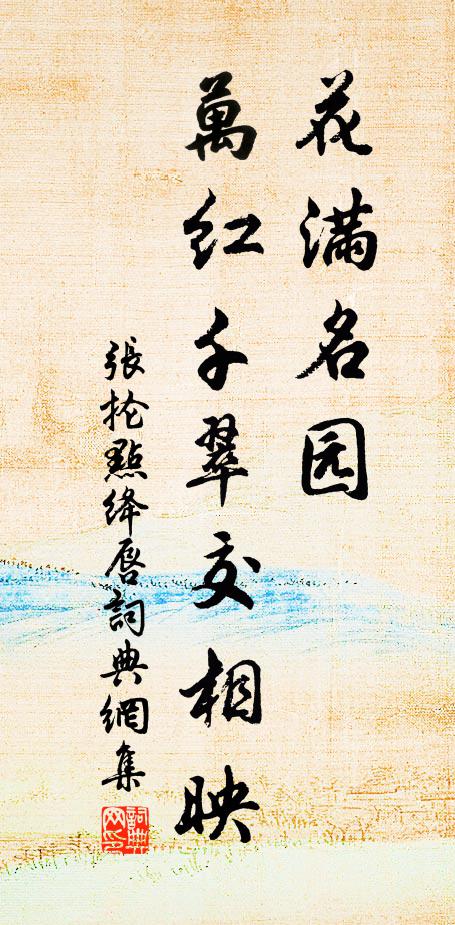 花满名园
萬红千翠交相映
張抡點绛唇詞典網集
詞典网印